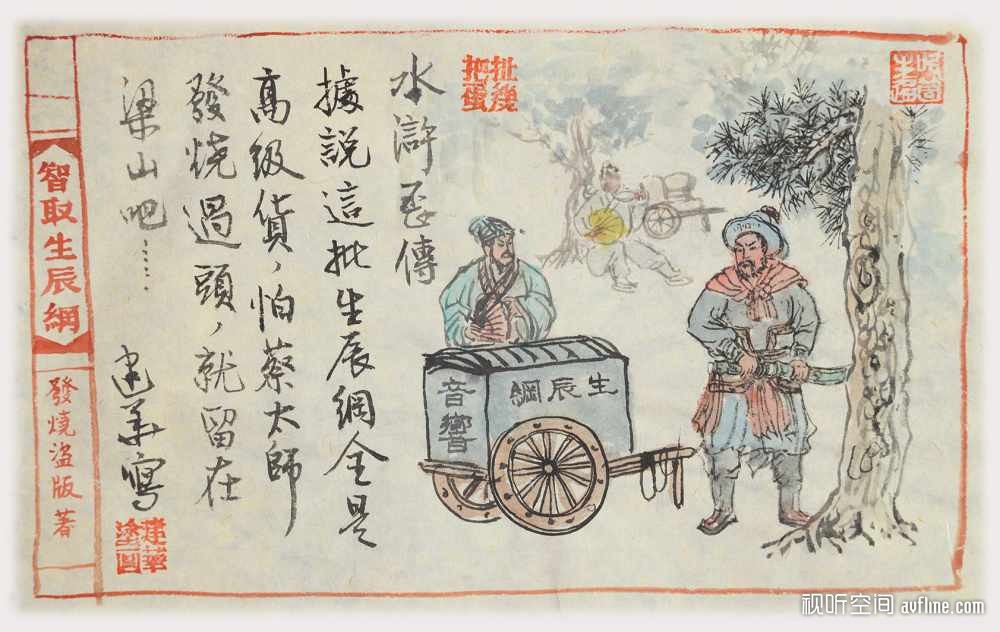 水滸歪傳
據說這批生辰網全是
高級貨，怕蔡太師
發燒過頭，就留在
梁山吧……
建華寫
建華
扯幾
把蛋
生辰綱
音響
智取生辰網
發燒盜版著
视听空间 avfline.com